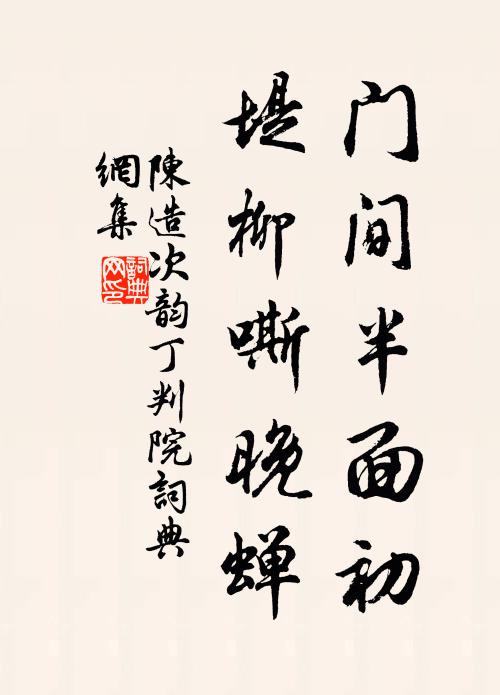 门间半面初
堤柳嘶晚蝉
陳造次韵丁判院詞典
網集
詞典
网印